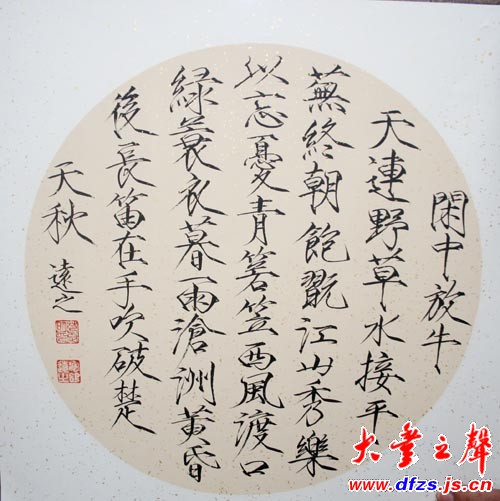 閑中放牛
天連野草水接平
蕪終朝飽翫江山秀樂
以忘憂青箬笠西風渡口
綠蓑衣暮雨滄洲黃昏
後長笛在手吹破楚
天秋
遠之
大豐之聲
www.dfzs.js.cn